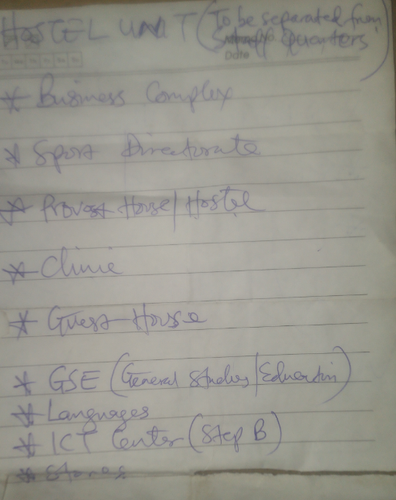 HOSTEL UNIT (To be separated from
Staff Quarters)
Date
* Business Complex
* Sport Directorate
* Provost House/Hostel
* Clinic
* Guest House
* GSE (General Studies/Education)
* Languages
* ICT Center (Step B)
* Stores